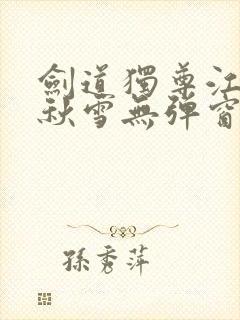 劍道獨尊江
秋雪無彈窗
孫秀萍